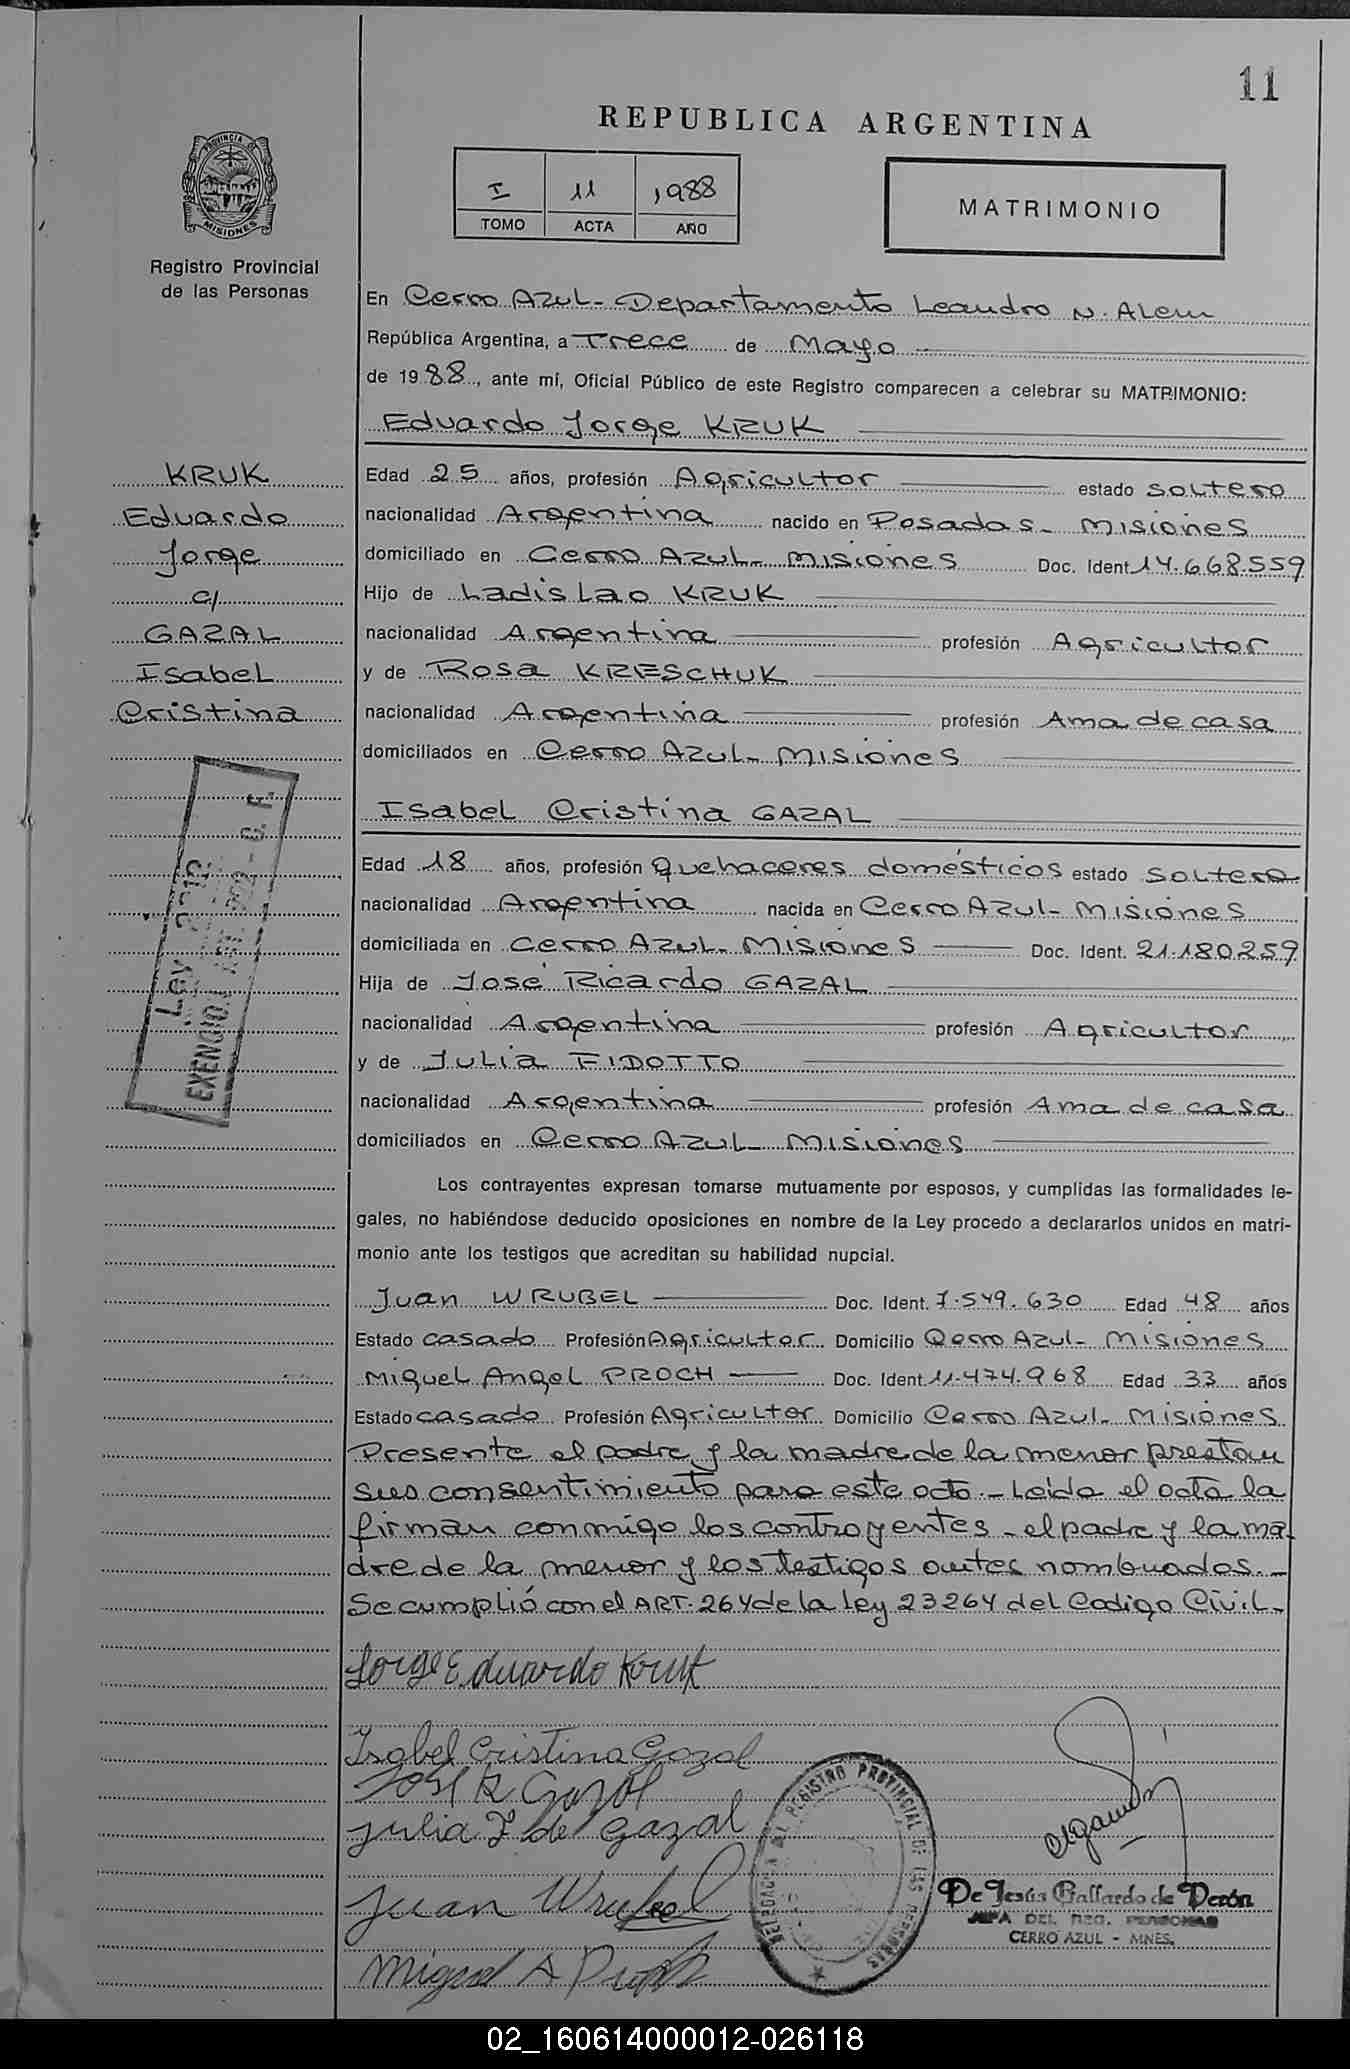 11
REPUBLICA ARGENTINA
I 11 1988
TOMO ACTA AÑO
MATRIMONIO
PROVINCIA DE
MISIONES
Registro Provincial
de las Personas
En Cerro Azul - Departamento Leandro N. Alem
República Argentina, a Trece de Mayo
de 1988, ante mí, Oficial Público de este Registro comparecen a celebrar su MATRIMONIO:
Eduardo Jorge KRUK
KRUK
Eduardo
Jorge
c/
GAZAL
Isabel
Cristina
Edad 25 años, profesión Agricultor estado soltero
nacionalidad Argentina nacido en Posadas - Misiones
domiciliado en Cerro Azul - Misiones Doc. Ident. 14.668.559
Hijo de Ladislao KRUK
nacionalidad Argentina profesión Agricultor
y de Rosa KRESCHUK
nacionalidad Argentina profesión Ama de casa
domiciliados en Cerro Azul - Misiones
Isabel Cristina GAZAL
Edad 18 años, profesión Quehaceres domésticos estado soltera
nacionalidad Argentina nacida en Cerro Azul - Misiones
domiciliada en Cerro Azul - Misiones Doc. Ident. 21.180.259
Hija de José Ricardo GAZAL
nacionalidad Argentina profesión Agricultor
y de Julia FIDOTTO
nacionalidad Argentina profesión Ama de casa
domiciliados en Cerro Azul - Misiones
Ley
EXENCIO
Los contrayentes expresan tomarse mutuamente por esposos, y cumplidas las formalidades le-
gales, no habiéndose deducido oposiciones en nombre de la Ley procedo a declararlos unidos en matri-
monio ante los testigos que acreditan su habilidad nupcial.
Juan WRUBEL Doc. Ident. 7.549.630 Edad 48 años
Estado casado Profesión Agricultor Domicilio Cerro Azul - Misiones
Miguel Angel PROCH Doc. Ident. 11.474.968 Edad 33 años
Estado casado Profesión Agricultor Domicilio Cerro Azul - Misiones
Presente el padre y la madre de la menor prestan
sus consentimiento para este acto. - Leída el acta la
firman conmigo los contrayentes - el padre y la ma-
dre de la menor y los testigos antes nombrados. -
Se cumplió con el ART. 264 de la Ley 23264 del Codigo Civil. -
Jorge Eduardo Kruk
Isabel Cristina Gazal
José R Gazal
Julia F de Gazal
Juan Wrubel
Miguel A Proch
DELEGACION DEL REGISTRO PROVINCIAL DE LAS PERSONAS
De Jesús Gallardo de Perón
JEFA DEL REG. PERSONAS
CERRO AZUL - MNES.
02_160614000012-026118